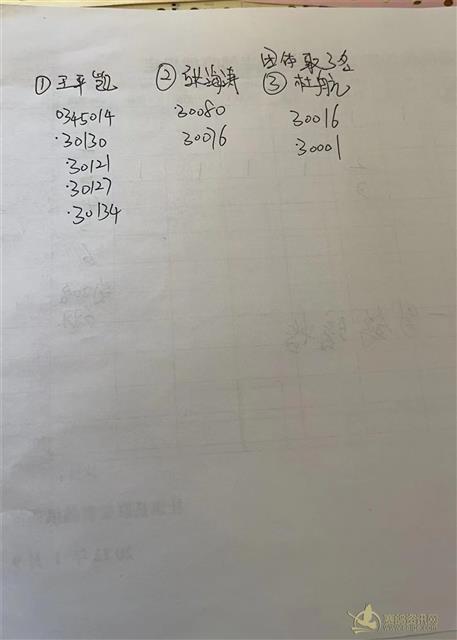 团体取3名
①王平凯 ②张海涛 ③杜航
0345014 30080 30016
30130 30076 30001
30121
30127
30134
赛鸽资讯网